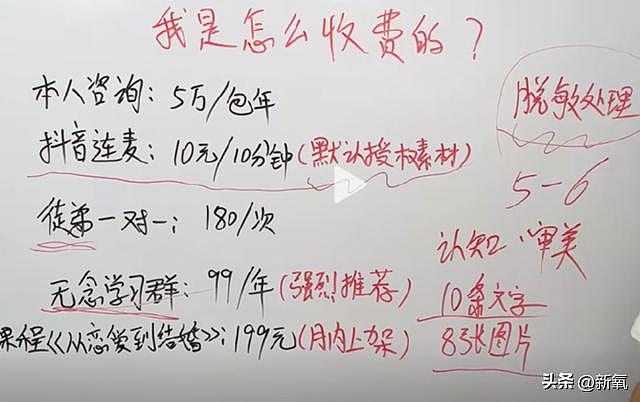 我是怎么收费的？
本人咨询：5万/包年
抖音连麦：10元/10分钟(默认授权素材)
徒弟一对一：180/次
无念学习群：99/年(强烈推荐)
课程《从恋爱到结婚》：199元(月内上架)
脱敏处理
5-6
认知、审美
10条文字
8张图片
头条@新氧